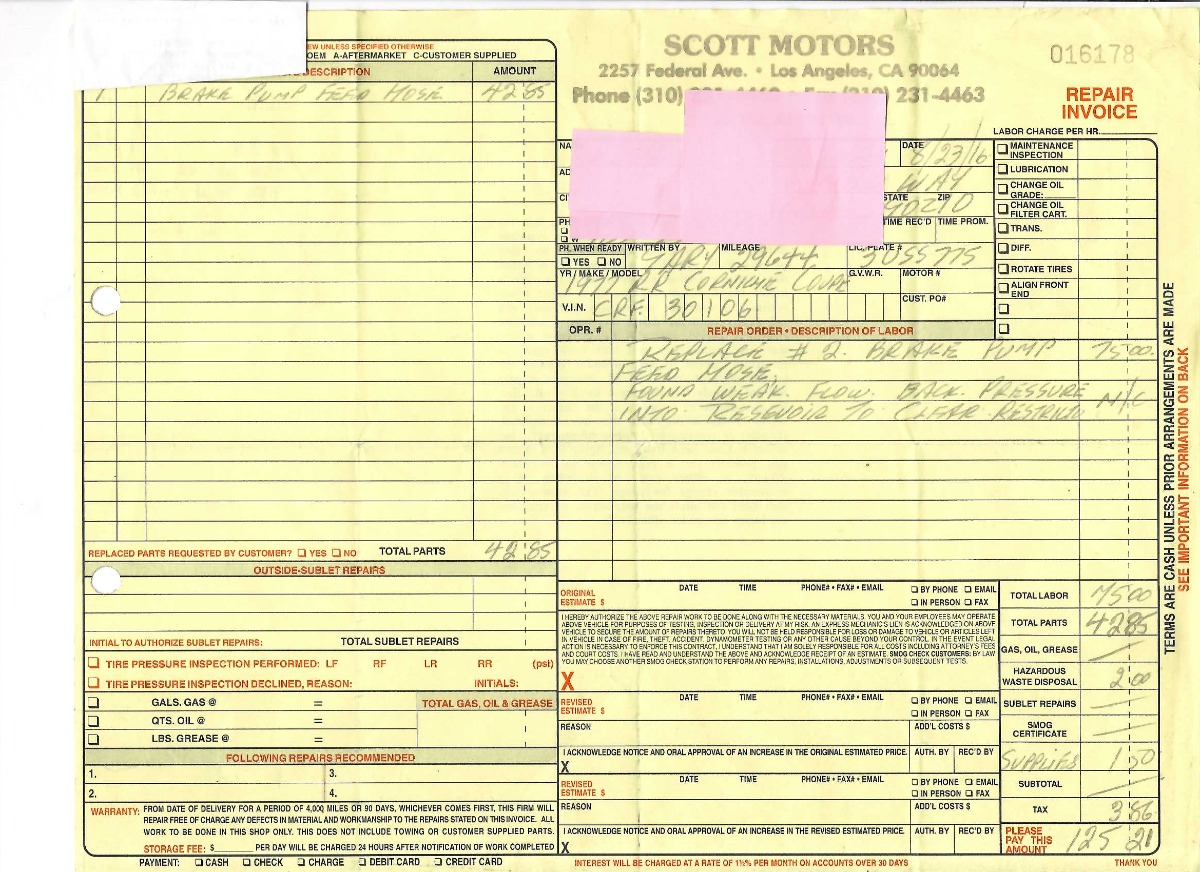 SCOTT MOTORS
2257 Federal Ave. • Los Angeles, CA 90064
Phone (310)
231-4463
016178
REPAIR
INVOICE
LABOR CHARGE PER HR.
UNLESS SPECIFIED OTHERWISE
OEM A-AFTERMARKET C-CUSTOMER SUPPLIED
DESCRIPTION AMOUNT
1 BRAKE PUMP FEED HOSE 42 85
REPLACED PARTS REQUESTED BY CUSTOMER? ☐ YES ☐ NO TOTAL PARTS 42 85
OUTSIDE-SUBLET REPAIRS
INITIAL TO AUTHORIZE SUBLET REPAIRS: TOTAL SUBLET REPAIRS
☐ TIRE PRESSURE INSPECTION PERFORMED: LF RF LR RR (psi)
☐ TIRE PRESSURE INSPECTION DECLINED, REASON: INITIALS:
☐ GALS. GAS @ = TOTAL GAS, OIL & GREASE
☐ QTS. OIL @ =
☐ LBS. GREASE @ =
FOLLOWING REPAIRS RECOMMENDED
1. 3.
2. 4.
WARRANTY: FROM DATE OF DELIVERY FOR A PERIOD OF 4,000 MILES OR 90 DAYS, WHICHEVER COMES FIRST, THIS FIRM WILL
REPAIR FREE OF CHARGE ANY DEFECTS IN MATERIAL AND WORKMANSHIP TO THE REPAIRS STATED ON THIS INVOICE. ALL
WORK TO BE DONE IN THIS SHOP ONLY. THIS DOES NOT INCLUDE TOWING OR CUSTOMER SUPPLIED PARTS.
STORAGE FEE: $ PER DAY WILL BE CHARGED 24 HOURS AFTER NOTIFICATION OF WORK COMPLETED
PAYMENT: ☐ CASH ☐ CHECK ☐ CHARGE ☐ DEBIT CARD ☐ CREDIT CARD
NA
DATE 8/23/16
AD
WAY
CI
STATE ZIP
90210
PH
TIME REC'D TIME PROM.
PH. WHEN READY WRITTEN BY MILEAGE LIC. PLATE #
☐ YES ☐ NO GARY 29644 305S775
YR / MAKE / MODEL G.V.W.R. MOTOR #
1977 RR CORNICHE COUPE
V.I.N. CRF. 30106 CUST. PO#
OPR. # REPAIR ORDER • DESCRIPTION OF LABOR
REPLACE # 2. BRAKE PUMP 75 00.
FEED HOSE.
FOUND WEAK. FLOW. BACK. PRESSURE
INTO RESEVOIR TO CLEAR RESTRICTO N/C
☐ MAINTENANCE INSPECTION
☐ LUBRICATION
☐ CHANGE OIL GRADE:
☐ CHANGE OIL FILTER CART.
☐ TRANS.
☐ DIFF.
☐ ROTATE TIRES
☐ ALIGN FRONT END
ORIGINAL ESTIMATE $ DATE TIME PHONE# • FAX# • EMAIL ☐ BY PHONE ☐ EMAIL
☐ IN PERSON ☐ FAX
I HEREBY AUTHORIZE THE ABOVE REPAIR WORK TO BE DONE ALONG WITH THE NECESSARY MATERIALS. YOU AND YOUR EMPLOYEES MAY OPERATE
ABOVE VEHICLE FOR PURPOSES OF TESTING, INSPECTION OR DELIVERY AT MY RISK. AN EXPRESS MECHANIC'S LIEN IS ACKNOWLEDGED ON ABOVE
VEHICLE TO SECURE THE AMOUNT OF REPAIRS THERETO. YOU WILL NOT BE HELD RESPONSIBLE FOR LOSS OR DAMAGE TO VEHICLE OR ARTICLES LEFT
IN VEHICLE IN CASE OF FIRE, THEFT, ACCIDENT, DYNAMOMETER TESTING OR ANY OTHER CAUSE BEYOND YOUR CONTROL. IN THE EVENT LEGAL
ACTION IS NECESSARY TO ENFORCE THIS CONTRACT, I UNDERSTAND THAT I AM SOLELY RESPONSIBLE FOR ALL COSTS INCLUDING ATTORNEY'S FEES
AND COURT COSTS. I HAVE READ AND UNDERSTAND THE ABOVE AND ACKNOWLEDGE RECEIPT OF AN ESTIMATE. SMOG CHECK CUSTOMERS: BY LAW
YOU MAY CHOOSE ANOTHER SMOG CHECK STATION TO PERFORM ANY REPAIRS, INSTALLATIONS, ADJUSTMENTS OR SUBSEQUENT TESTS.
X
REVISED ESTIMATE $ DATE TIME PHONE# • FAX# • EMAIL ☐ BY PHONE ☐ EMAIL
☐ IN PERSON ☐ FAX
REASON ADD'L COSTS $
I ACKNOWLEDGE NOTICE AND ORAL APPROVAL OF AN INCREASE IN THE ORIGINAL ESTIMATED PRICE. AUTH. BY REC'D BY
X
REVISED ESTIMATE $ DATE TIME PHONE# • FAX# • EMAIL ☐ BY PHONE ☐ EMAIL
☐ IN PERSON ☐ FAX
REASON ADD'L COSTS $
I ACKNOWLEDGE NOTICE AND ORAL APPROVAL OF AN INCREASE IN THE REVISED ESTIMATED PRICE. AUTH. BY REC'D BY
X
INTEREST WILL BE CHARGED AT A RATE OF 1½% PER MONTH ON ACCOUNTS OVER 30 DAYS
TOTAL LABOR 75 00
TOTAL PARTS 42 85
GAS, OIL, GREASE —
HAZARDOUS WASTE DISPOSAL 2 00
SUBLET REPAIRS —
SMOG CERTIFICATE —
SUPPLIES 1 50
SUBTOTAL —
TAX 3 86
PLEASE PAY THIS AMOUNT 125 21
THANK YOU
TERMS ARE CASH UNLESS PRIOR ARRANGEMENTS ARE MADE
SEE IMPORTANT INFORMATION ON BACK